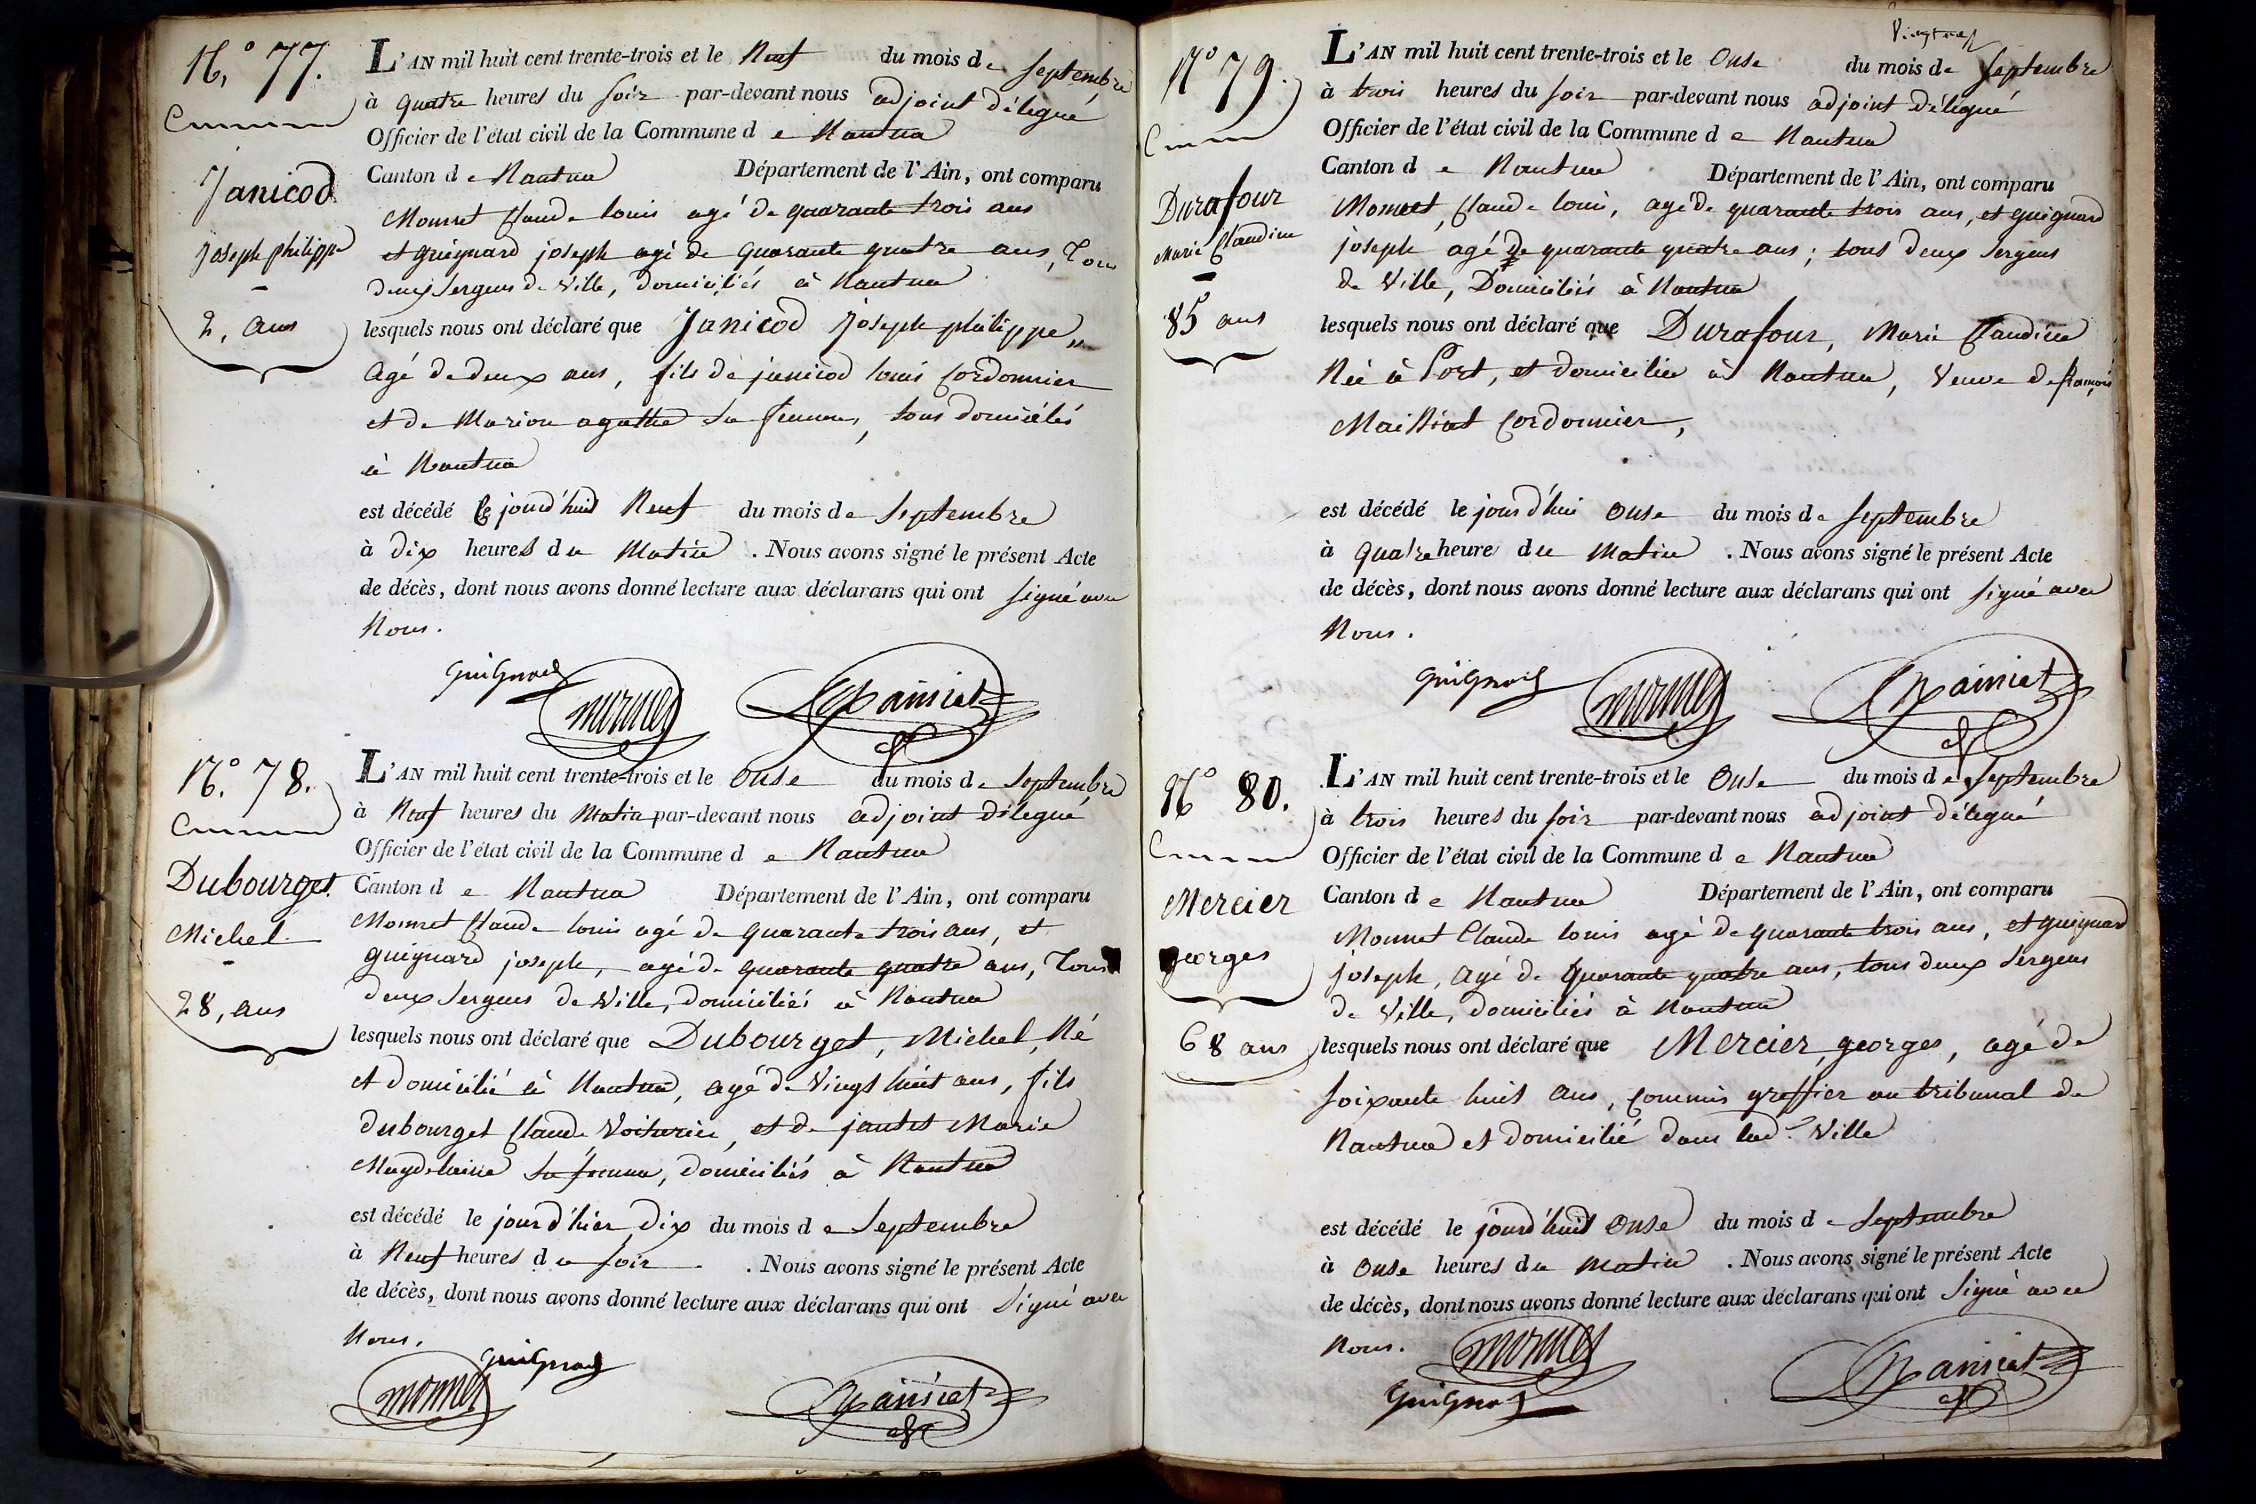 N.° 77.
Janicod
Joseph philippe
2, ans
L'AN mil huit cent trente-trois et le Neuf du mois de Septembre
à quatre heures du soir par-devant nous adjoint délegué
Officier de l'état civil de la Commune de Nantua
Canton de Nantua Département de l'Ain, ont comparu
Monnet Claude louis agé de quarante trois ans
et guignard joseph agé de quarante quatre ans, Tous
deux Sergens de Ville, domiciliés à Nantua
lesquels nous ont déclaré que Janicod Joseph philippe,,
Agé de deux ans, fils de janicod louis Cordonnier
et de Marion agathe sa femme, tous domiciliés
à Nantua
est décédé le jourd'huid Neuf du mois de Septembre
à dix heures du Matin . Nous avons signé le présent Acte
de décès, dont nous avons donné lecture aux déclarans qui ont signé avec
Nous.
Guignard Monnet
N.° 78.
Dubourget
Michel
28, ans
L'AN mil huit cent trente-trois et le Onse du mois de Septembre
à Neuf heures du Matin par-devant nous adjoint délegué
Officier de l'état civil de la Commune de Nantua
Canton de Nantua Département de l'Ain, ont comparu
Monnet Claude louis agé de quarante trois ans, et
guignard joseph, agé de quarante quatre ans, Tous
deux Sergens de Ville, domiciliés à Nantua
lesquels nous ont déclaré que Dubourget, Michel, Né
et domicilié à Nantua, agé de Vingt huit ans, fils
dubourget Claude Voiturier, et de jantet Marie
Magdelaine sa femme, domiciliés à Nantua
est décédé le jourd'hier dix du mois de Septembre
à Neuf heures du soir . Nous avons signé le présent Acte
de décès, dont nous avons donné lecture aux déclarans qui ont Signé avec
Nous.
Guignard
Monnet
N° 79.
Durafour
Marie Claudine
85 ans
L'AN mil huit cent trente-trois et le Onse du mois de Septembre
à trois heures du soir par-devant nous adjoint délegué
Officier de l'état civil de la Commune de Nantua
Canton de Nantua Département de l'Ain, ont comparu
Monnet, Claude louis, agé de quarante trois ans, et guignard
joseph agé de quarante quatre ans; tous deux Sergens
de Ville, Domiciliés à Nantua
lesquels nous ont déclaré que Durafour, Marie Claudine
Née à Port, et domiciliée à Nantua, Veuve de françois
Maissiat Cordonnier,
est décédé le jourd'hui Onse du mois de Septembre
à quatre heure du Matin . Nous avons signé le présent Acte
de décès, dont nous avons donné lecture aux déclarans qui ont signé avec
Nous.
Guignard Monnet
N° 80.
Mercier
georges
68 ans
L'AN mil huit cent trente-trois et le Onse du mois de Septembre
à trois heures du soir par-devant nous adjoint délegué
Officier de l'état civil de la Commune de Nantua
Canton de Nantua Département de l'Ain, ont comparu
Monnet Claude louis agé de quarante trois ans, et guignard
joseph, agé de quarante quatre ans, tous deux Sergens
de Ville, domiciliés à Nantua
lesquels nous ont déclaré que Mercier, georges, agé de
soixante huit ans, Commis greffier au tribunal de
Nantua et domicilié dans lad. Ville
est décédé le jourd'huid Onse du mois de Septembre
à Onse heures du Matin . Nous avons signé le présent Acte
de décès, dont nous avons donné lecture aux déclarans qui ont Signé avec
Nous. Monnet
Guignard